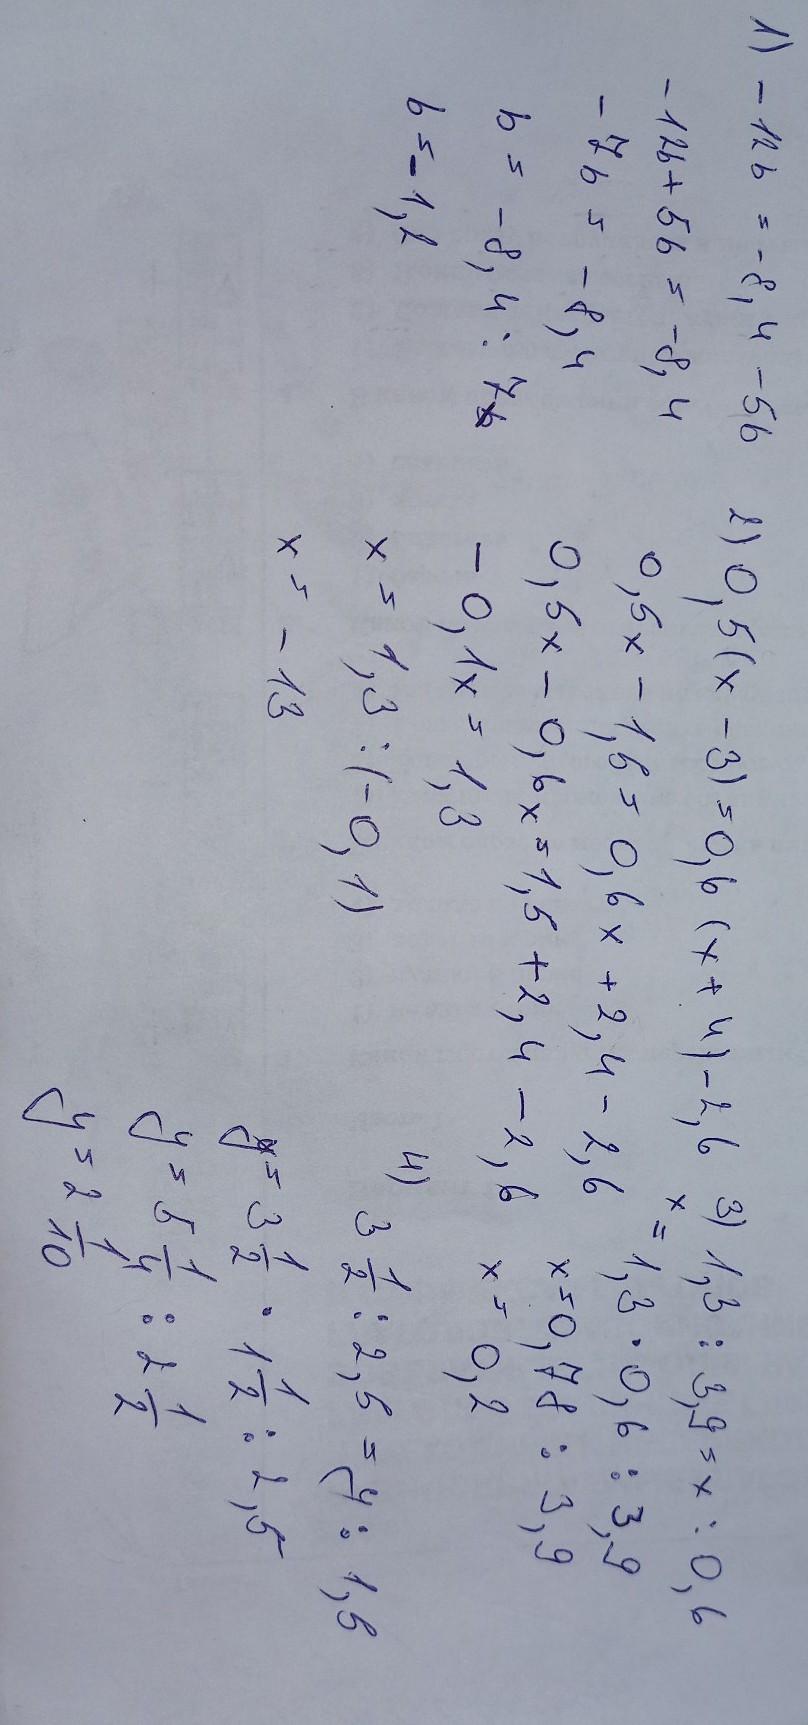 1) -12b = -8,4 - 5b
-12b + 5b = -8,4
-7b = -8,4
b = -8,4 : 7
b = -1,2
2) 0,5(x - 3) = 0,6(x + 4) - 2,6
0,5x - 1,5 = 0,6x + 2,4 - 2,6
0,5x - 0,6x = 1,5 + 2,4 - 2,6
-0,1x = 1,3
x = 1,3 : (-0,1)
x = -13
3) 1,3 : 3,9 = x : 0,6
x = 1,3 · 0,6 : 3,9
x = 0,78 : 3,9
x = 0,2
4) 3 1/2 : 2,5 = y : 1,5
y = 3 1/2 · 1 1/2 : 2,5
y = 5 1/4 : 2 1/2
y = 2 1/10